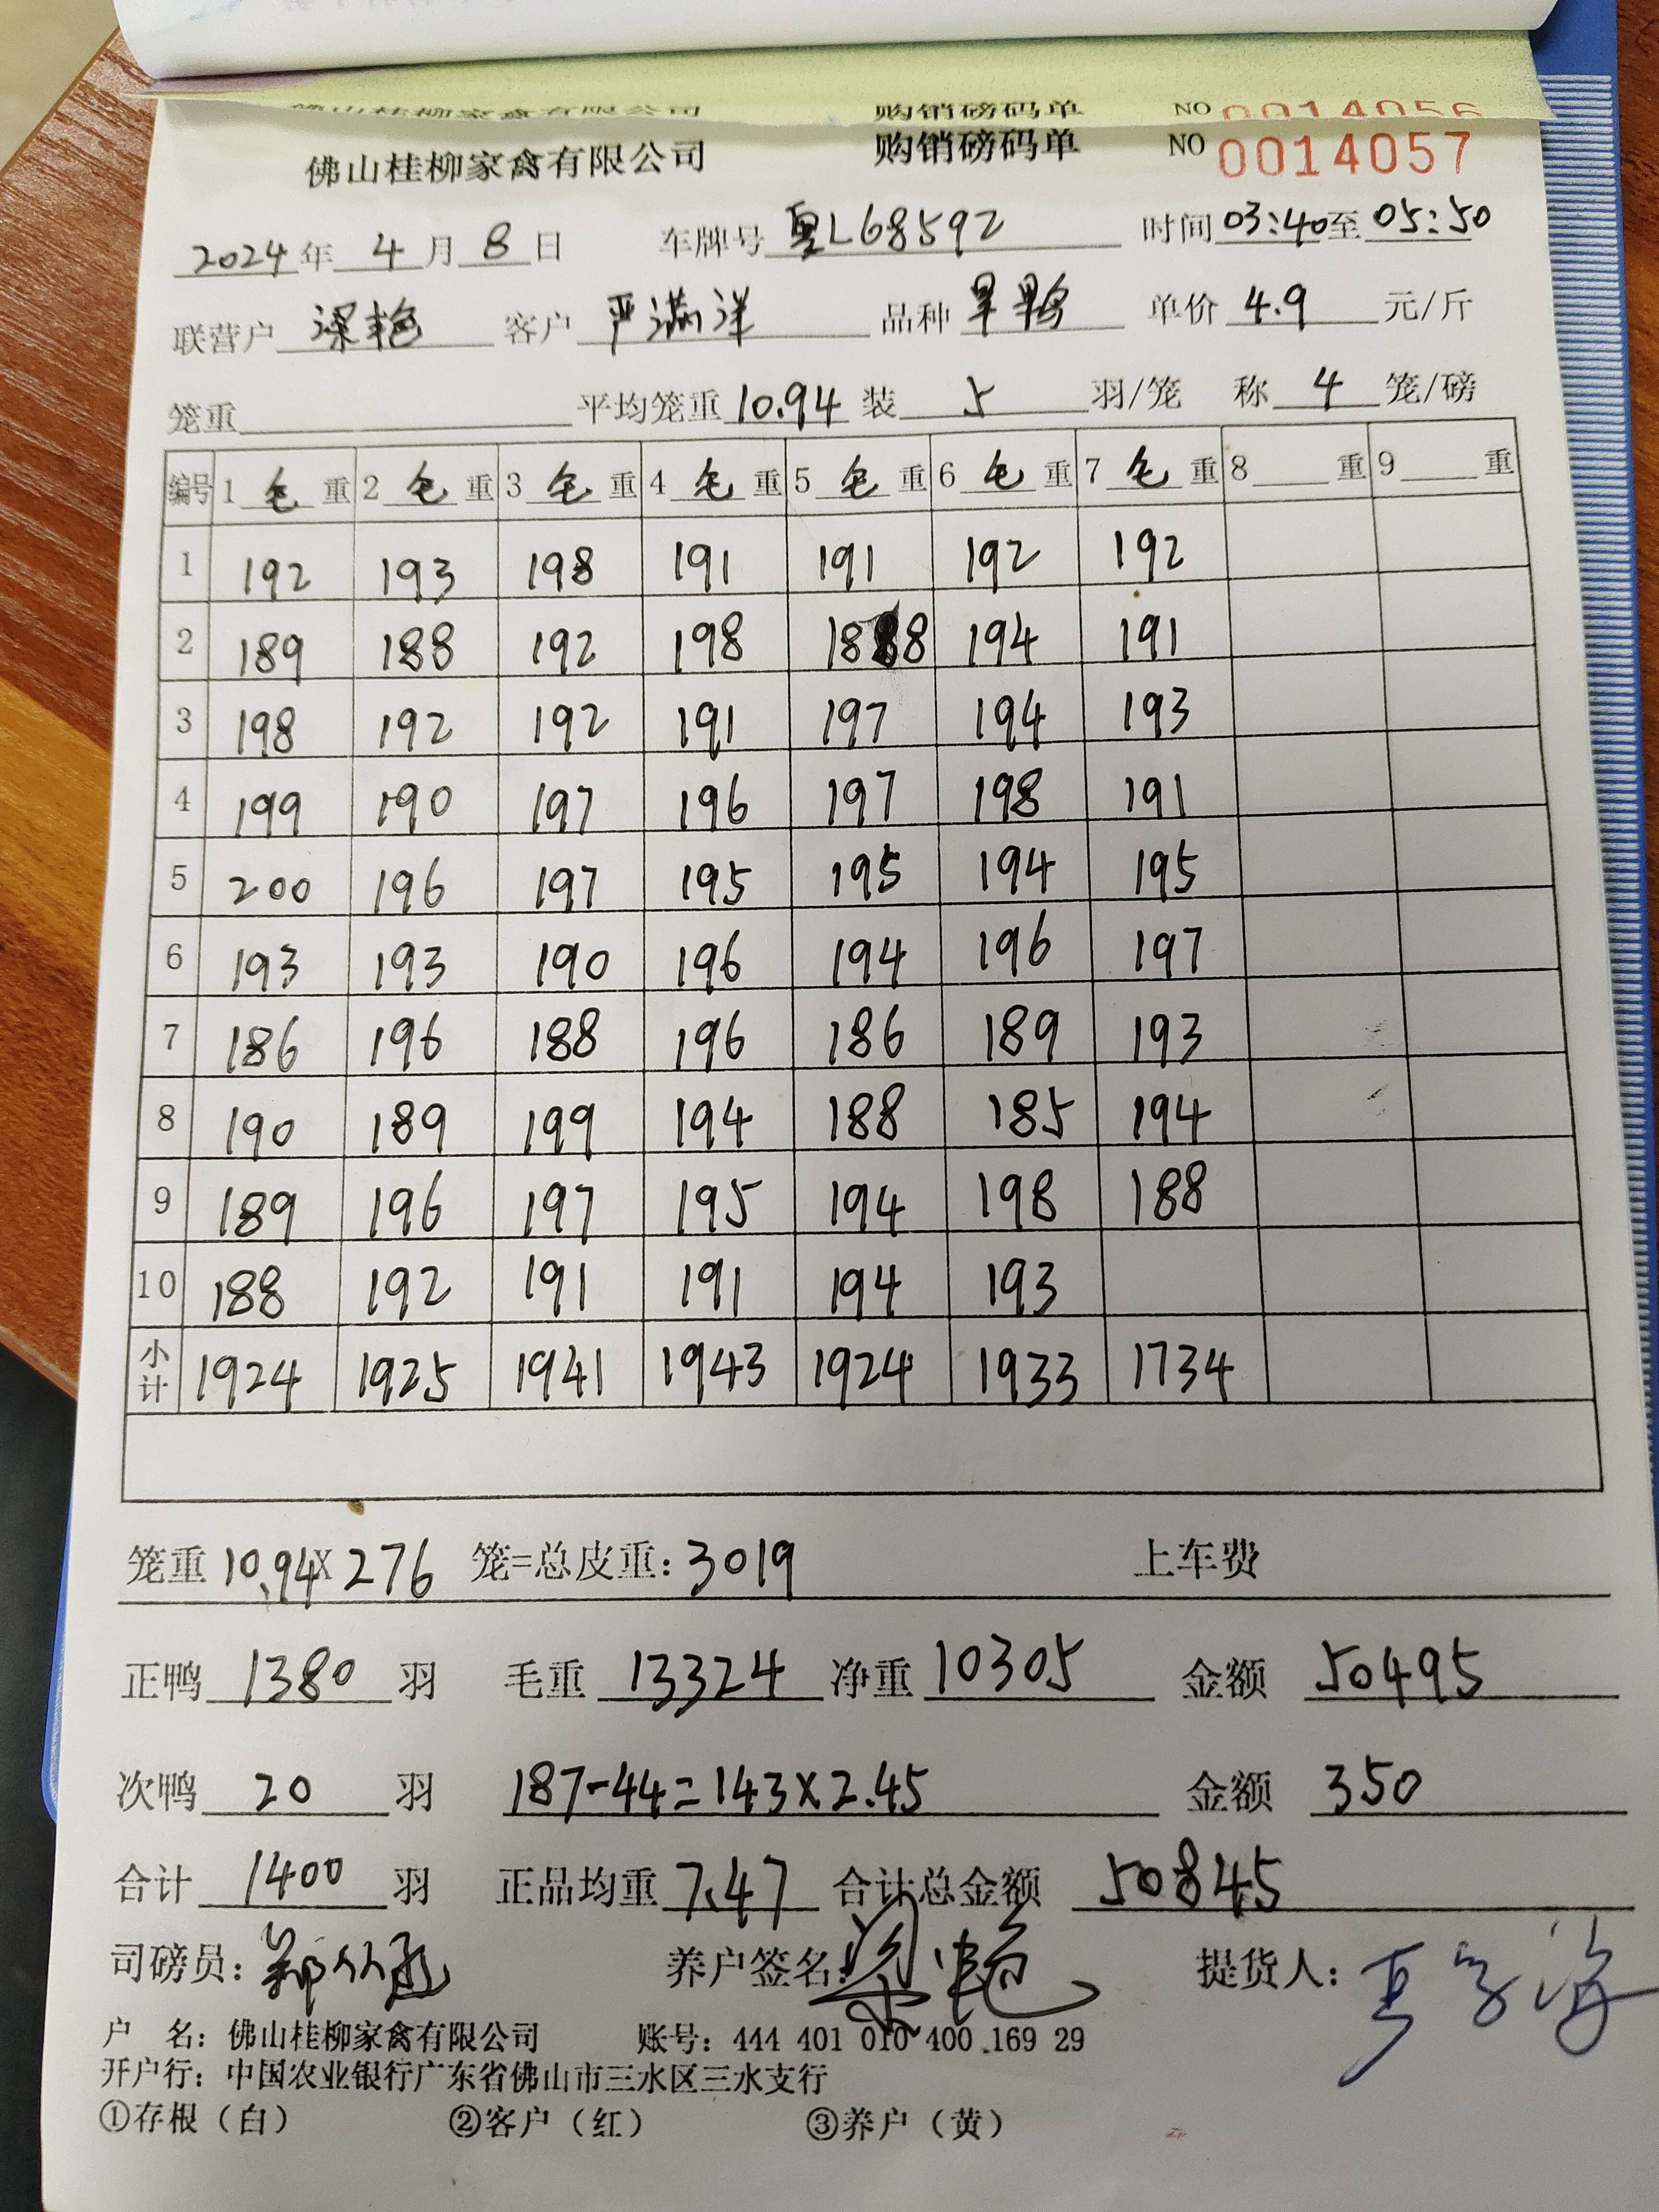 佛山桂柳家禽有限公司 购销磅码单 NO 0014056
佛山桂柳家禽有限公司 购销磅码单 NO 0014057
2024年 4月 8日 车牌号 粤L68592 时间 03:40至 05:50
联营户 梁艳 客户 严满洋 品种 旱鸭 单价 4.9 元/斤
笼重 平均笼重 10.94 装 5 羽/笼 称 4 笼/磅
编号 1 毛 重 2 毛 重 3 毛 重 4 毛 重 5 毛 重 6 毛 重 7 毛 重 8 重 9 重
1 192 193 198 191 191 192 192
2 189 188 192 198 188 194 191
3 198 192 192 191 197 194 193
4 199 190 197 196 197 198 191
5 200 196 197 195 195 194 195
6 193 193 190 196 194 196 197
7 186 196 188 196 186 189 193
8 190 189 199 194 188 185 194
9 189 196 197 195 194 198 188
10 188 192 191 191 194 193
小计 1924 1925 1941 1943 1924 1933 1734
笼重 10.94 X 276 笼=总皮重: 3019 上车费
正鸭 1380 羽 毛重 13324 净重 10305 金额 50495
次鸭 20 羽 187-44=143×2.45 金额 350
合计 1400 羽 正品均重 7.47 合计总金额 50845
司磅员: 养户签名: 梁艳 提货人:
户 名: 佛山桂柳家禽有限公司 账号: 444 401 010 400 169 29
开户行: 中国农业银行广东省佛山市三水区三水支行
①存根（白） ②客户（红） ③养户（黄）